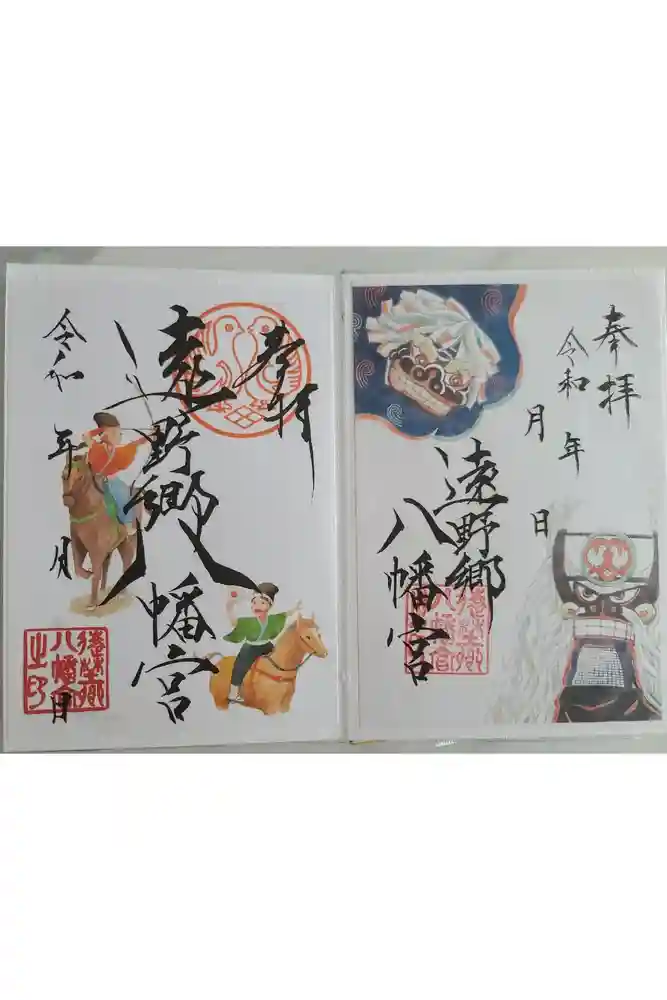 奉拝
遠野郷八幡宮
令和 年 月 日
遠野郷
八幡宮
之印
奉拝
令和 年
月 日
遠野郷
八幡宮
遠野郷
八幡宮